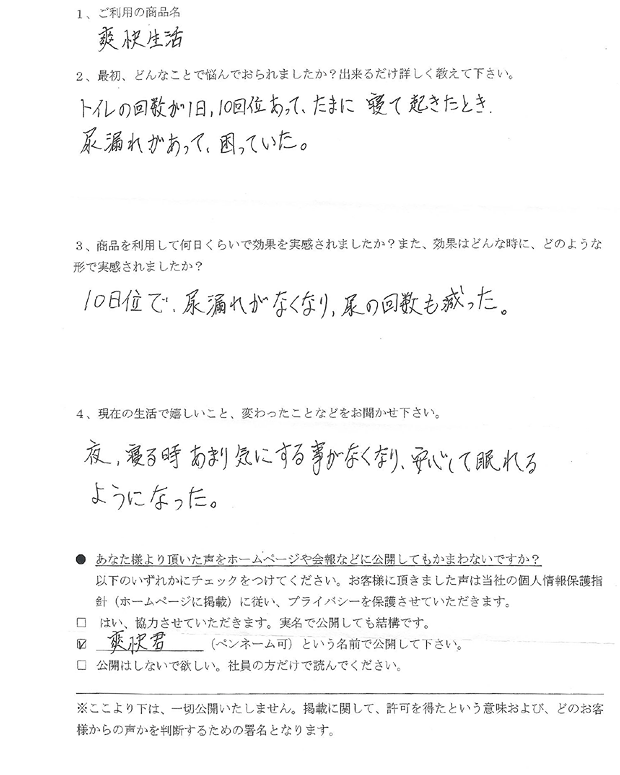 1、ご利用の商品名
爽快生活
2、最初、どんなことで悩んでおられましたか？出来るだけ詳しく教えて下さい。
トイレの回数が1日,10回位あって、たまに 寝て起きたとき.
尿漏れがあって、困っていた。
3、商品を利用して何日くらいで効果を実感されましたか？また、効果はどんな時に、どのような
形で実感されましたか？
10日位で、尿漏れがなくなり,尿の回数も減った。
4、現在の生活で嬉しいこと、変わったことなどをお聞かせ下さい。
夜,寝る時あまり気にする事がなくなり、安心して眠れる
ようになった。
● あなた様より頂いた声をホームページや会報などに公開してもかまわないですか？
以下のいずれかにチェックをつけてください。お客様に頂きました声は当社の個人情報保護指
針（ホームページに掲載）に従い、プライバシーを保護させていただきます。
□ はい、協力させていただきます。実名で公開しても結構です。
☑ 爽快君 （ペンネーム可）という名前で公開して下さい。
□ 公開はしないで欲しい。社員の方だけで読んでください。
※ここより下は、一切公開いたしません。掲載に関して、許可を得たという意味および、どのお客
様からの声かを判断するための署名となります。